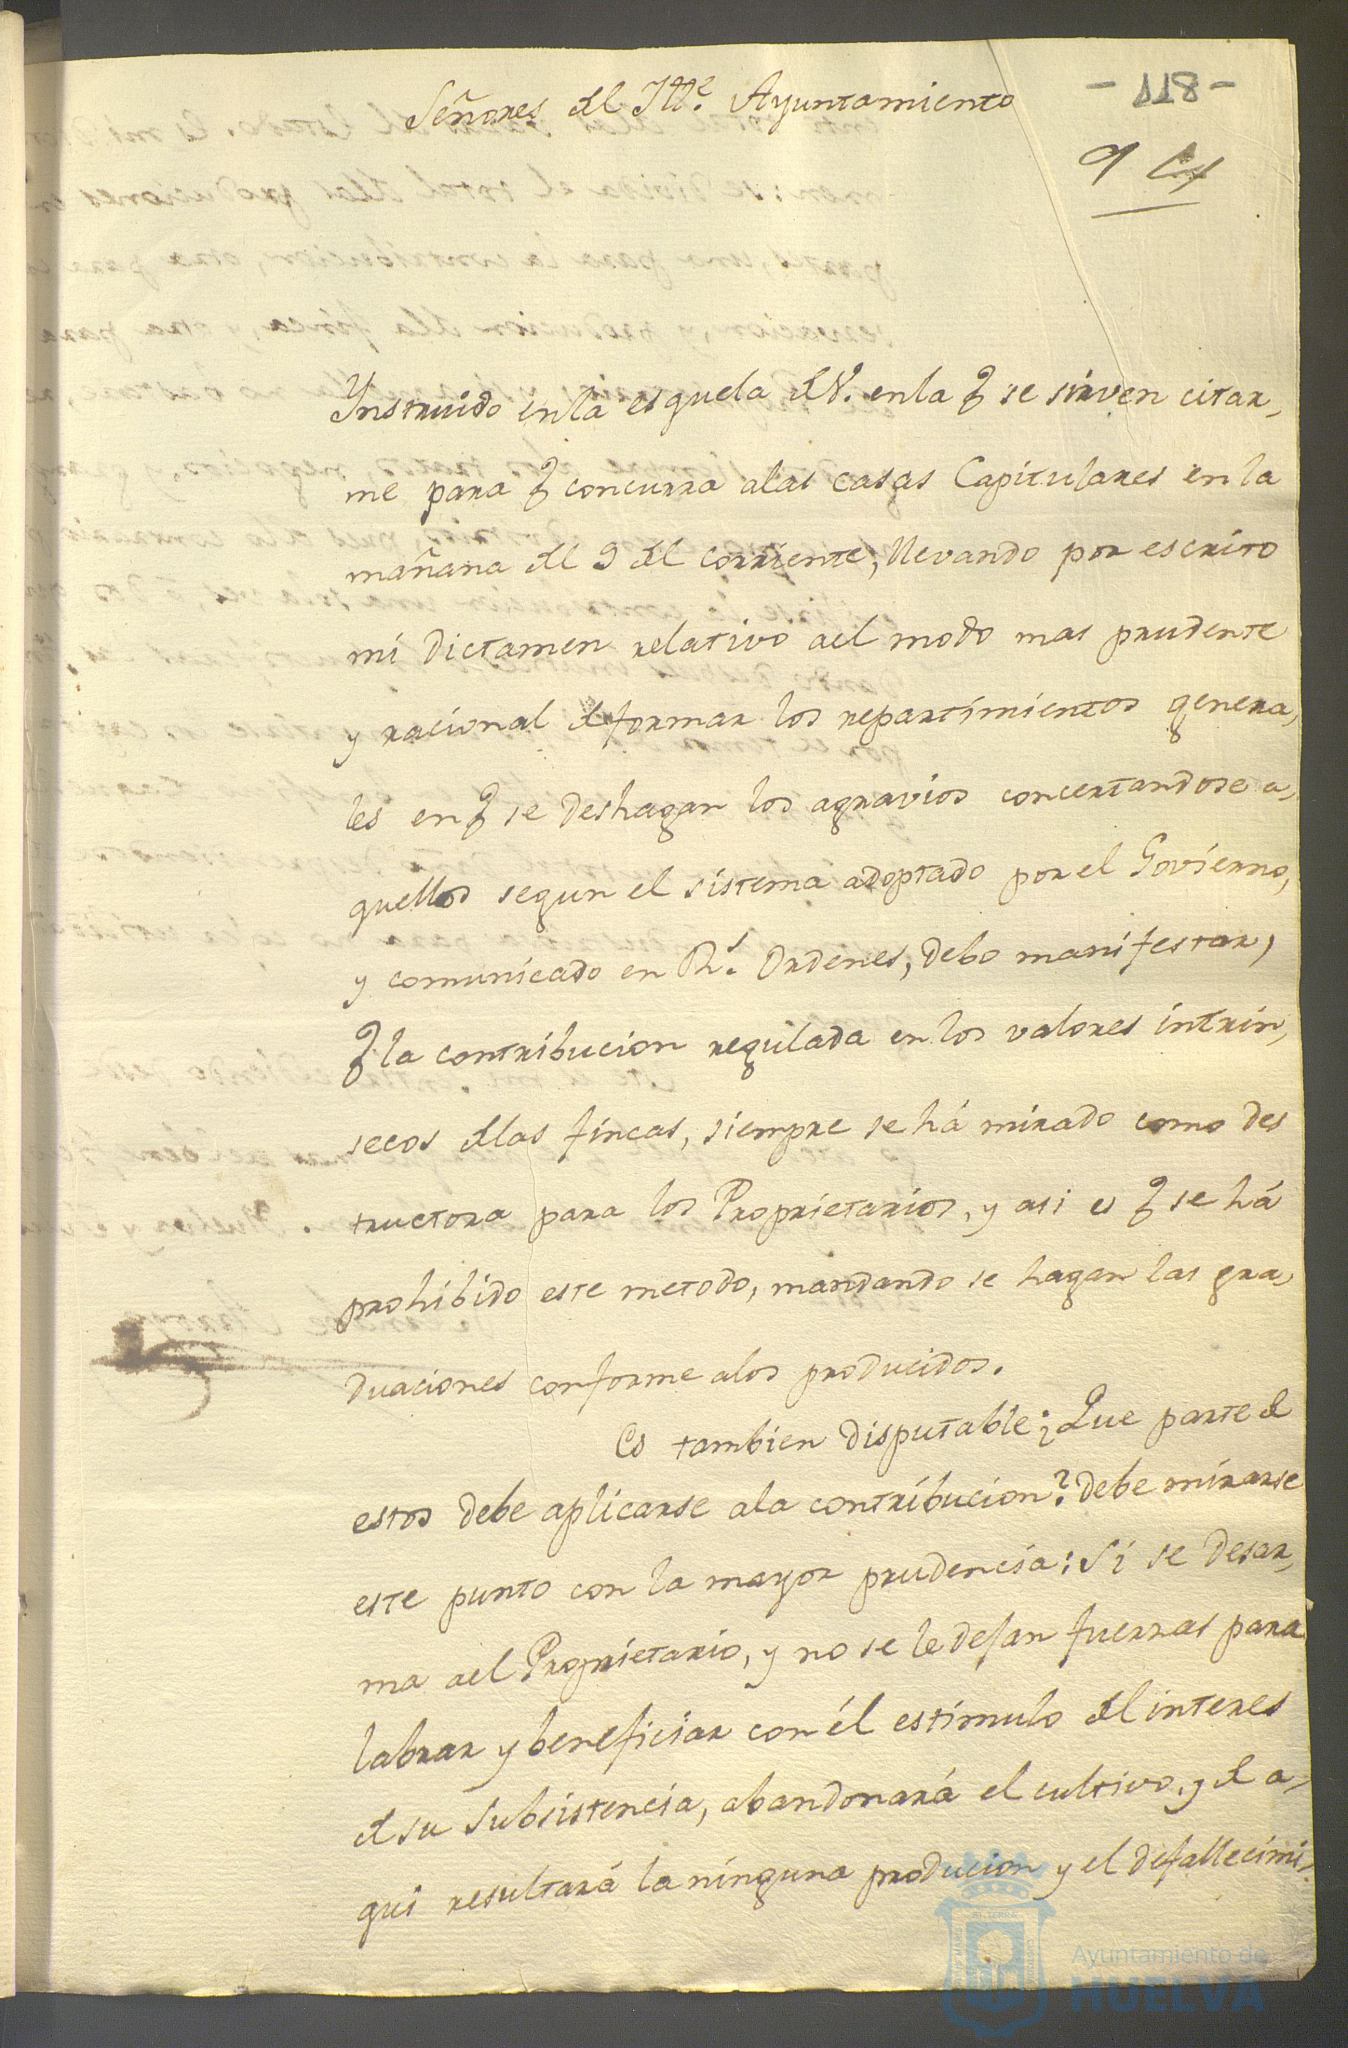 Señores del Illᵉ. Ayuntamiento
- 118 -
9
Ynstruido en la esquela d V. en la q̃ se sirven citar,
me para q̃ concurra alas casas Capitulares en la
mañana del 9 del corriente, llevando por escrito
mi dictamen relativo ael modo mas prudente
y racional de formar los repartimientos genera,
les en q̃ se deshagan los agravios concertandose a,
quellos segun el sistema adoptado por el Govierno,
y comunicado en Rˢ. Ordenes, debo manifestar,
q̃ la contribucion regulada en los valores intrin,
secos delas fincas, siempre se há mirado como des
tructora para los Proprietarios, y asi es q̃ se há
prohibido este metodo, mandando se hagan las gra,
duaciones conforme alos producidos.
Es tambien disputable ¿Que parte de
estos debe aplicarse ala contribucion? Debe mirarse
este punto con la mayor prudencia: Si se desar,
ma ael Proprietario, y no se le dejan fuerzas para
labrar y beneficiar con él estimulo del interes
de su subsistencia, abandonará el cultivo, y de a,
qui resultará la ninguna producion y el defallecimi,
Ayuntamiento de
HUELVA